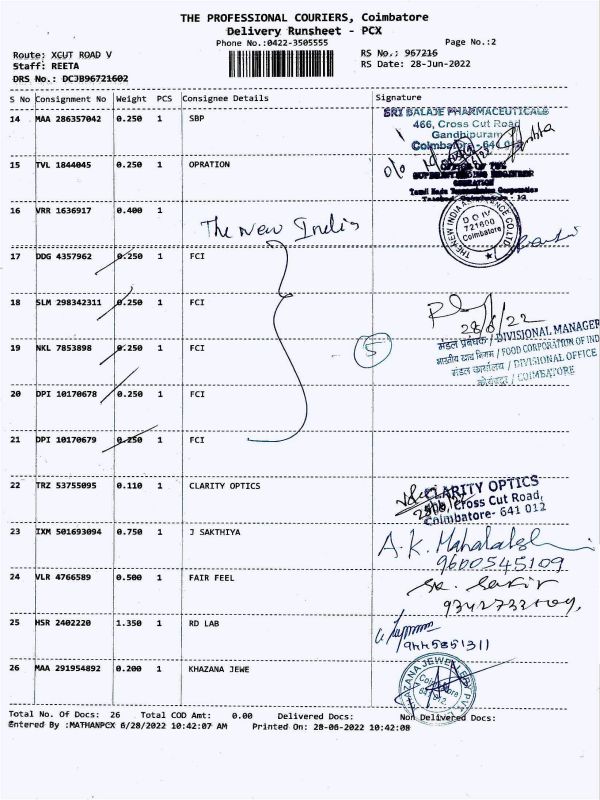 THE PROFESSIONAL COURIERS, Coimbatore
Delivery Runsheet - PCX
Phone No.:0422-3505555 Page No.:2
Route: XCUT ROAD V RS No.: 967216
Staff: REETA RS Date: 28-Jun-2022
DRS No.: DCJB96721602
S No Consignment No Weight PCS Consignee Details Signature
14 MAA 286357042 0.250 1 SBP
SRI BALAJE PHARMACEUTICALS
466, Cross Cut Road
Gandhipuram
Coimbatore - 641 012
15 TVL 1844045 0.250 1 OPRATION
OFFICE OF THE
SUPERINTENDING ENGINEER
OPERATION
16 VRR 1636917 0.400 1
The New India
THE NEW INDIA ASSURANCE CO.LTD.
D O IV
721600
Coimbatore
17 DDG 4357962 0.250 1 FCI
18 SLM 298342311 0.250 1 FCI
28/6/22
मंडल प्रबंधक / DIVISIONAL MANAGER
भारतीय खाद्य निगम / FOOD CORPORATION OF IND
मंडल कार्यालय / DIVISIONAL OFFICE
कोयंबटूर / COIMBATORE
19 NKL 7853898 0.250 1 FCI
5
20 DPI 10170678 0.250 1 FCI
21 DPI 10170679 0.250 1 FCI
22 TRZ 53755095 0.110 1 CLARITY OPTICS
CLARITY OPTICS
Cross Cut Road,
Coimbatore- 641 012
23 IXM 501693094 0.750 1 J SAKTHIYA
9600545109
24 VLR 4766589 0.500 1 FAIR FEEL
25 HSR 2402220 1.350 1 RD LAB
9445851311
26 MAA 291954892 0.200 1 KHAZANA JEWE
Total No. Of Docs: 26 Total COD Amt: 0.00 Delivered Docs: Non Delivered Docs:
Entered By :MATHANPCX 6/28/2022 10:42:07 AM Printed On: 28-06-2022 10:42:08